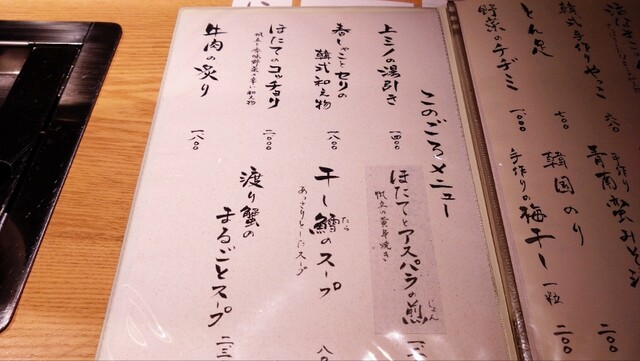 このごろメニュー
上ミノの湯引き
一四〇〇
春しゃことセリの
韓式和え物
一八〇〇
ほたてのコッチョリ
帆立と香味野菜の辛い和え物
二〇〇〇
牛肉の炙り
一八〇〇
ほたてとアスパラの煎
じょん
帆立の黄身焼き
干し鱈のスープ
たら
あっさりとしたスープ
渡り蟹の
まるごとスープ
韓式手作りやっこ
六〇〇
とん足
七〇〇
野菜のチヂミ
一〇〇〇
手作り
青南蛮みそ
二〇〇
韓国のり
二〇〇
手作りの梅干し
一粒
二〇〇